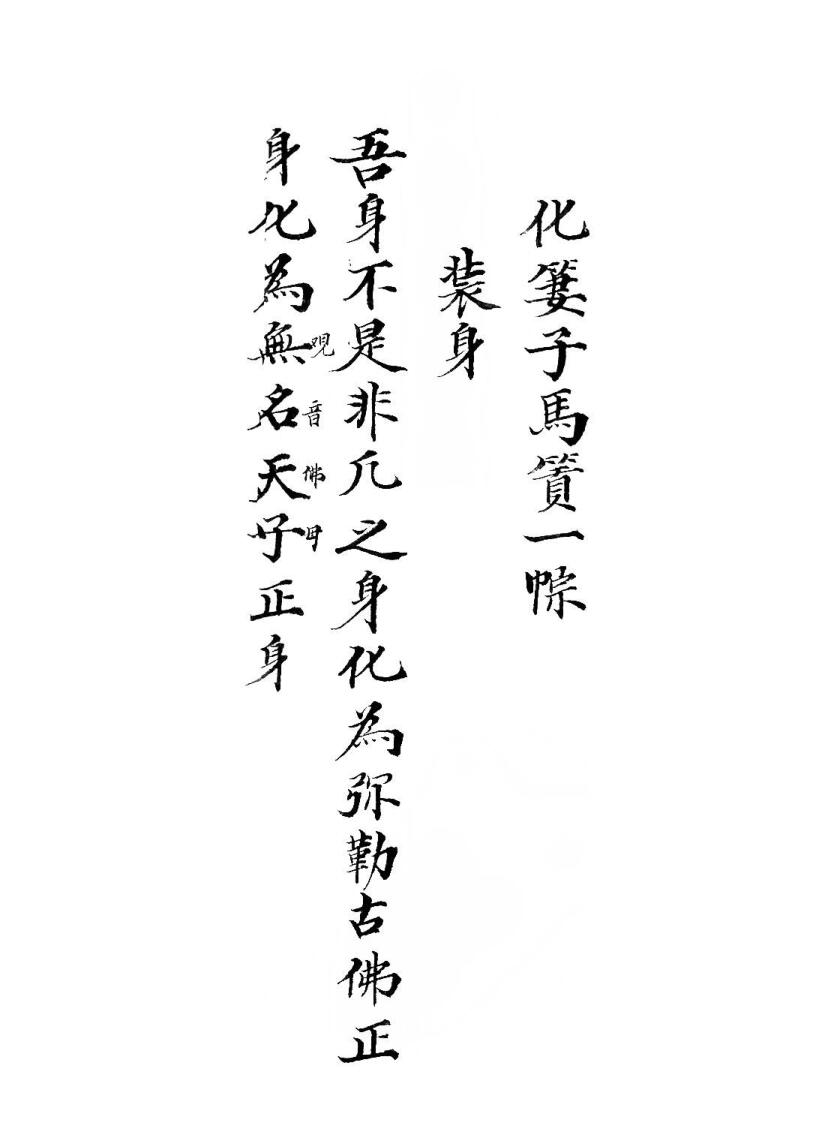 化篓子馬簣一㡓
装身
吾身不是非凢之身化為弥勒古佛正
身化為無名天子正身
观音佛母